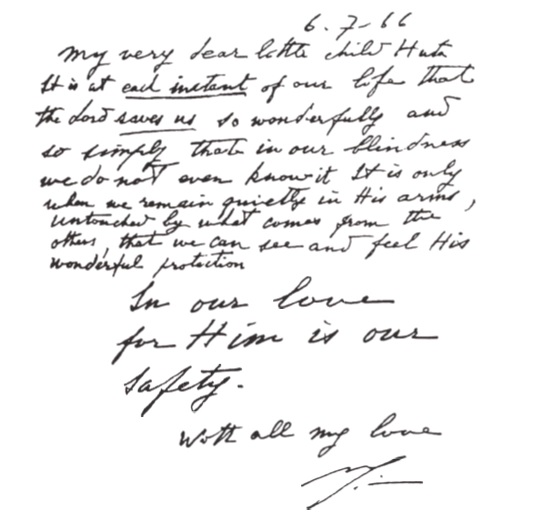 6.7-66
My very dear little child Huta
It is at each instant of our life that
the Lord saves us so wonderfully and
so simply that in our blindness
we do not even know it It is only
when we remain quietly in His arms,
untouched by what comes from the
others, that we can see and feel His
wonderful protection
In our love
for Him is our
safety.
With all my love